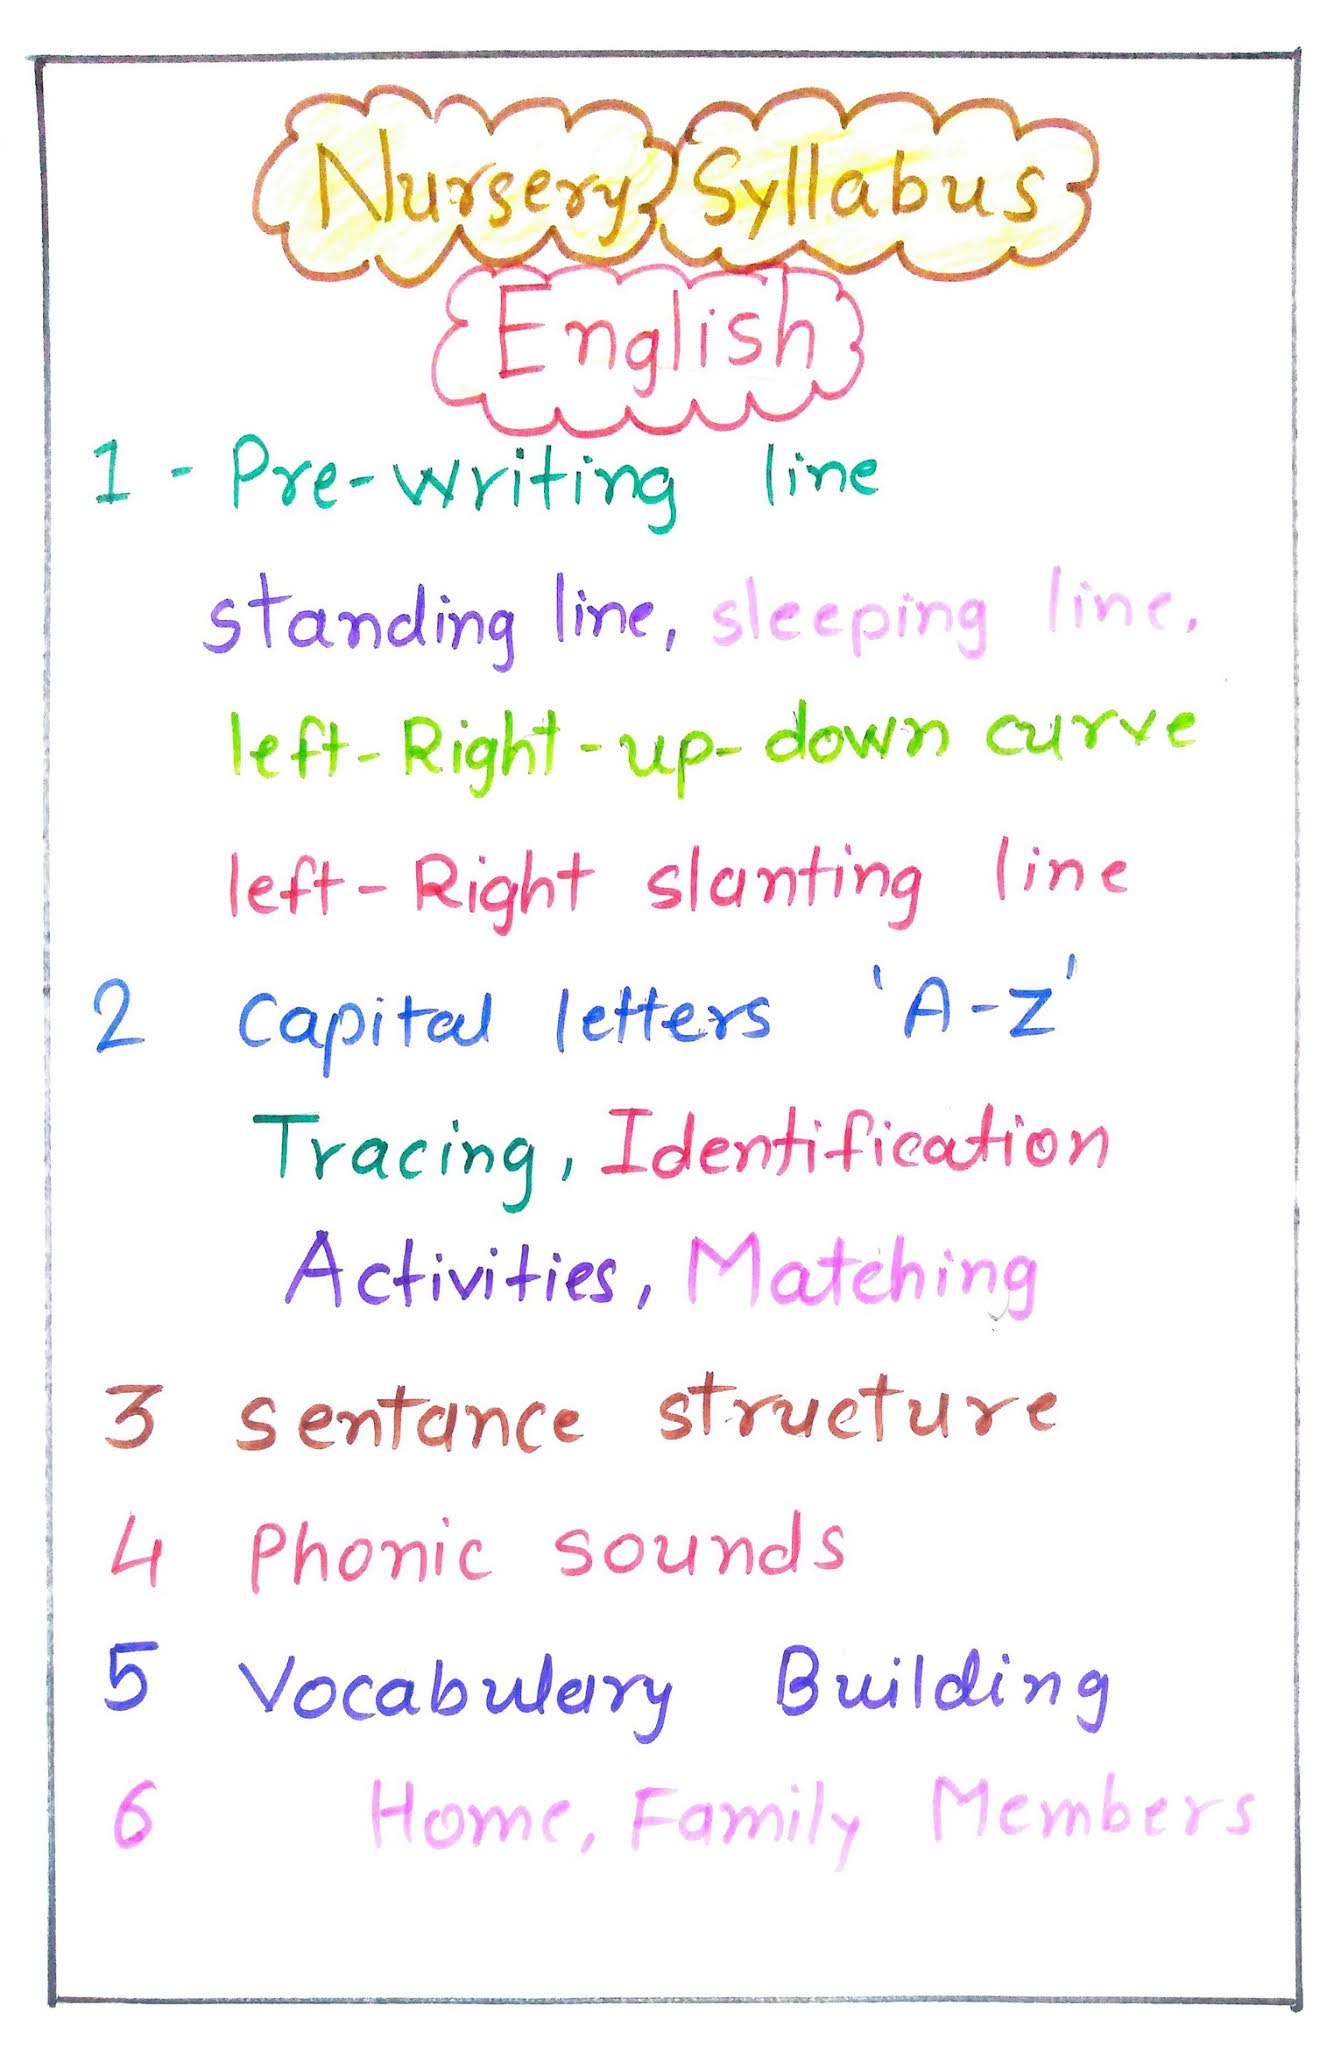 Nursery Syllabus
English
1 - Pre-writing line
standing line, sleeping line,
left-Right-up-down curve
left-Right slanting line
2 Capital letters 'A-Z'
Tracing, Identification
Activities, Matching
3 Sentance structure
4 Phonic sounds
5 Vocabulary Building
6 Home, Family Members